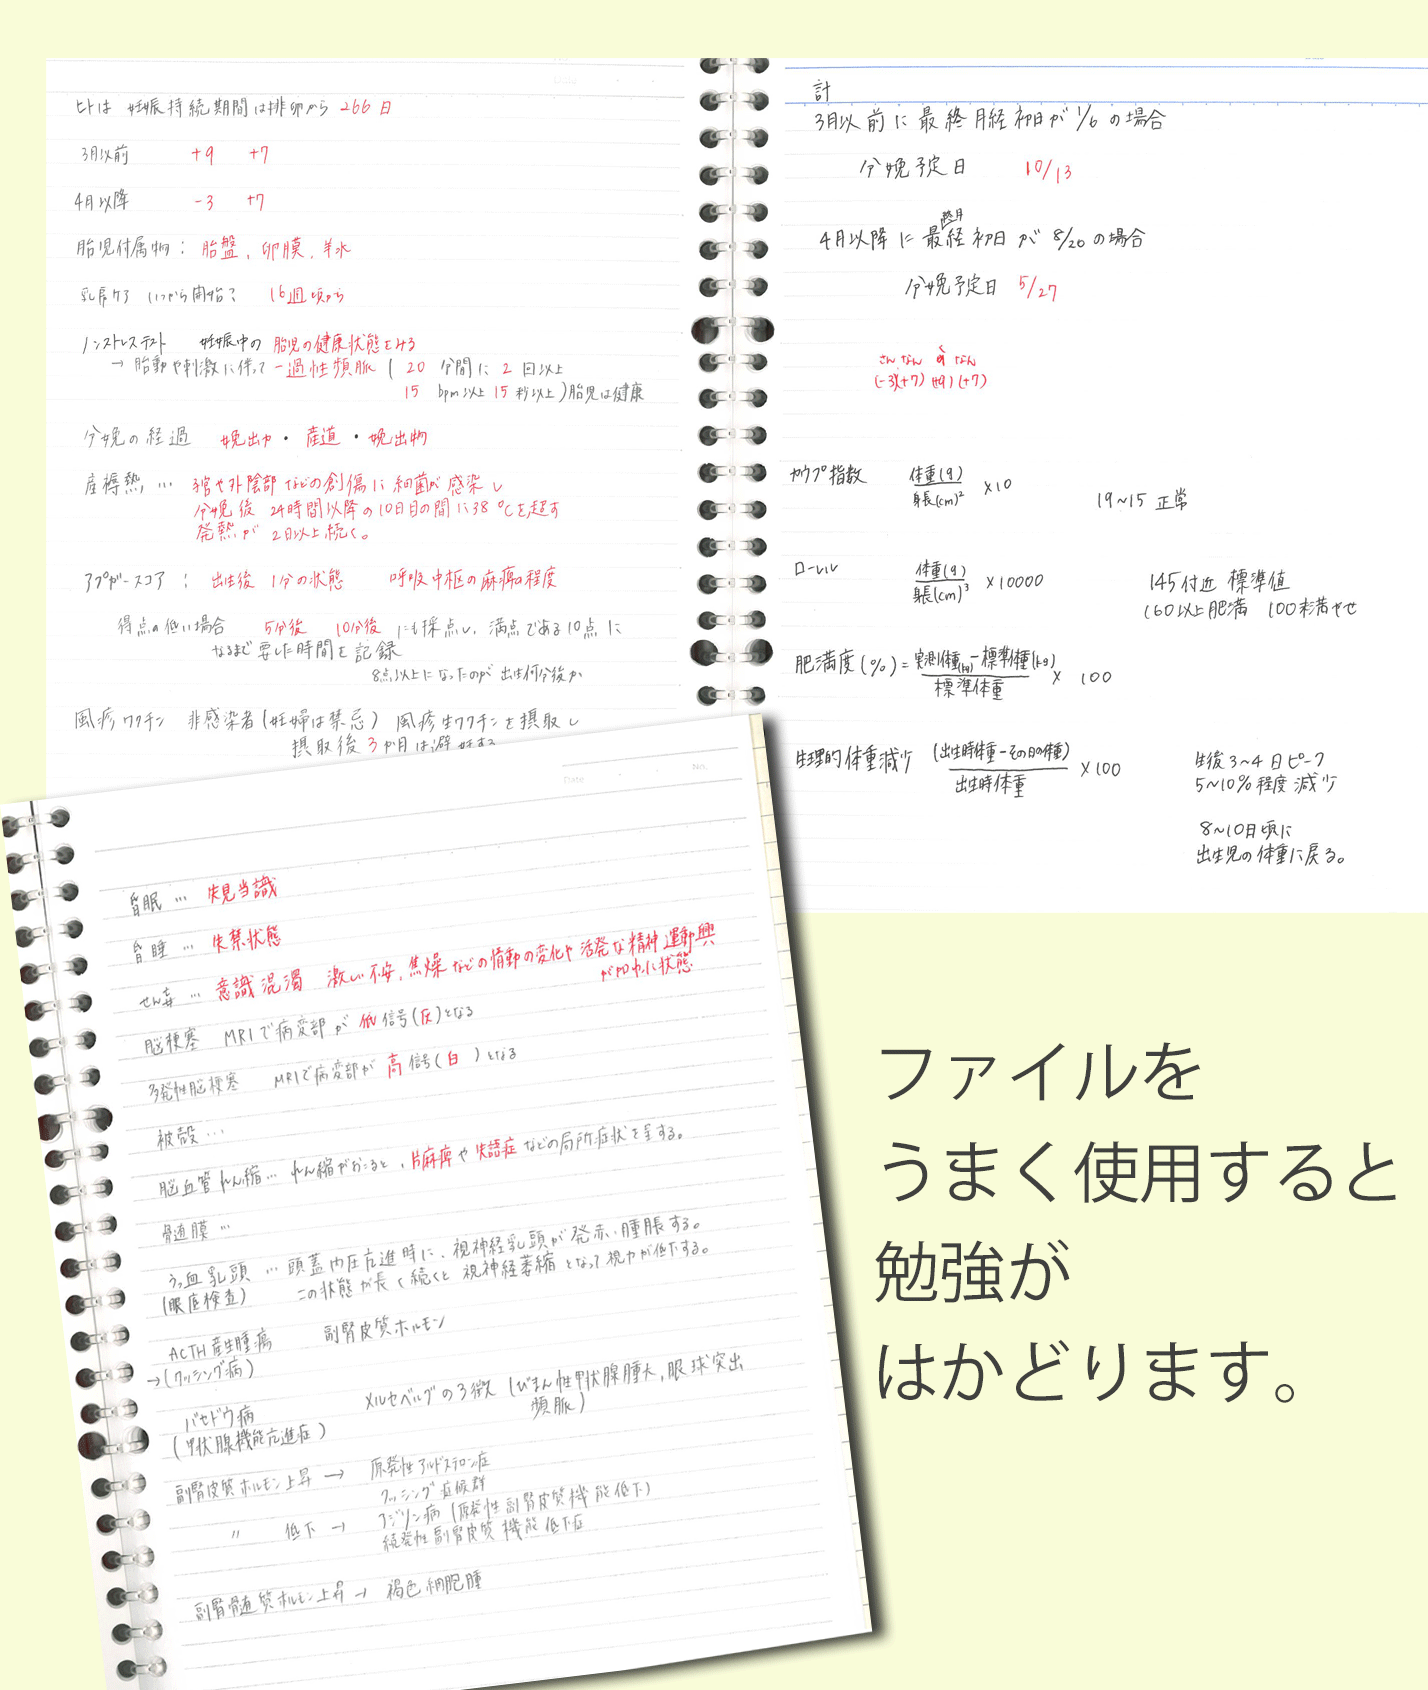 ヒトは 妊娠持続期間は排卵から 266日
3月以前 +9 +7
4月以降 -3 +7
胎児付属物：胎盤、卵膜、羊水
乳房ケア いつから開始？ 16週頃から
ノンストレステスト 妊娠中の 胎児の健康状態をみる
→ 胎動や刺激に伴って一過性頻脈 ( 20 分間に 2 回以上
15 bpm以上 15 秒以上 ) 胎児は健康
分娩の経過 娩出力・産道・娩出物
産褥熱 … 子宮や外陰部などの創傷に細菌が感染し
分娩後 24時間以降の10日目の間に38℃を超す
発熱が 2日以上続く。
アプガースコア： 出生後 1分の状態 呼吸中枢の麻痺の程度
得点の低い場合 5分後 10分後 にも採点し、満点である10点に
なるまで要した時間を記録
8点以上になったのが出生何分後か
風疹ワクチン 非感染者(妊婦は禁忌) 風疹生ワクチンを摂取し
摂取後 3か月は避妊する
計
3月以前に最終月経初日が 1/6 の場合
分娩予定日 10/13
終月
4月以降に最経初日が 8/20 の場合
分娩予定日 5/27
さん なん く なん
(-3)(+7) (+9) (+7)
カウプ指数 体重(g)/身長(cm)² ×10
19~15 正常
ローレル 体重(g)/身長(cm)³ ×10000
145付近 標準値
160以上肥満 100未満やせ
肥満度(%)=実測体種(kg)-標準体種(kg)/標準体重 × 100
生理的体重減少 (出生時体重-その日の体種)/出生時体重 ×100
生後3~4日ピーク
5~10%程度減少
8~10日頃に
出生児の体重に戻る。
Date No.
昏眠 … 失見当識
昏睡 … 失禁状態
せん妄 … 意識混濁 激しい不安、焦燥などの情動の変化や活発な精神運動興
が加わった状態
脳梗塞 MRIで病変部が 低 信号(灰)となる
多発性脳梗塞 MRIで病変部が 高 信号(白)となる
被殻 …
脳血管れん縮 … れん縮がおこると、片麻痺や失語症などの局所症状を呈する。
骨髄膜 …
うっ血乳頭 … 頭蓋内圧亢進時に、視神経乳頭が発赤、腫脹する。
(眼底検査) この状態が長く続くと視神経萎縮となって視力が低下する。
ACTH産生腫瘍 副腎皮質ホルモン
→(クッシング病)
バセドウ病 メルセベルグの3徴 (びまん性甲状腺腫大、眼球突出
(甲状腺機能亢進症) 頻脈)
副腎皮質ホルモン上昇 → 原発性アルドステロン症
クッシング症候群
〃 低下 → アジソン病(原発性副腎皮質機能低下)
続発性副腎皮質機能低下症
副腎髄質ホルモン上昇 → 褐色細胞腫
ファイルを
うまく使用すると
勉強が
はかどります。